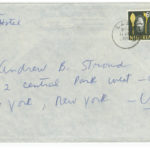 Hotel
Andrew B. Stroud
2 Central Park West -
York, New York -
U